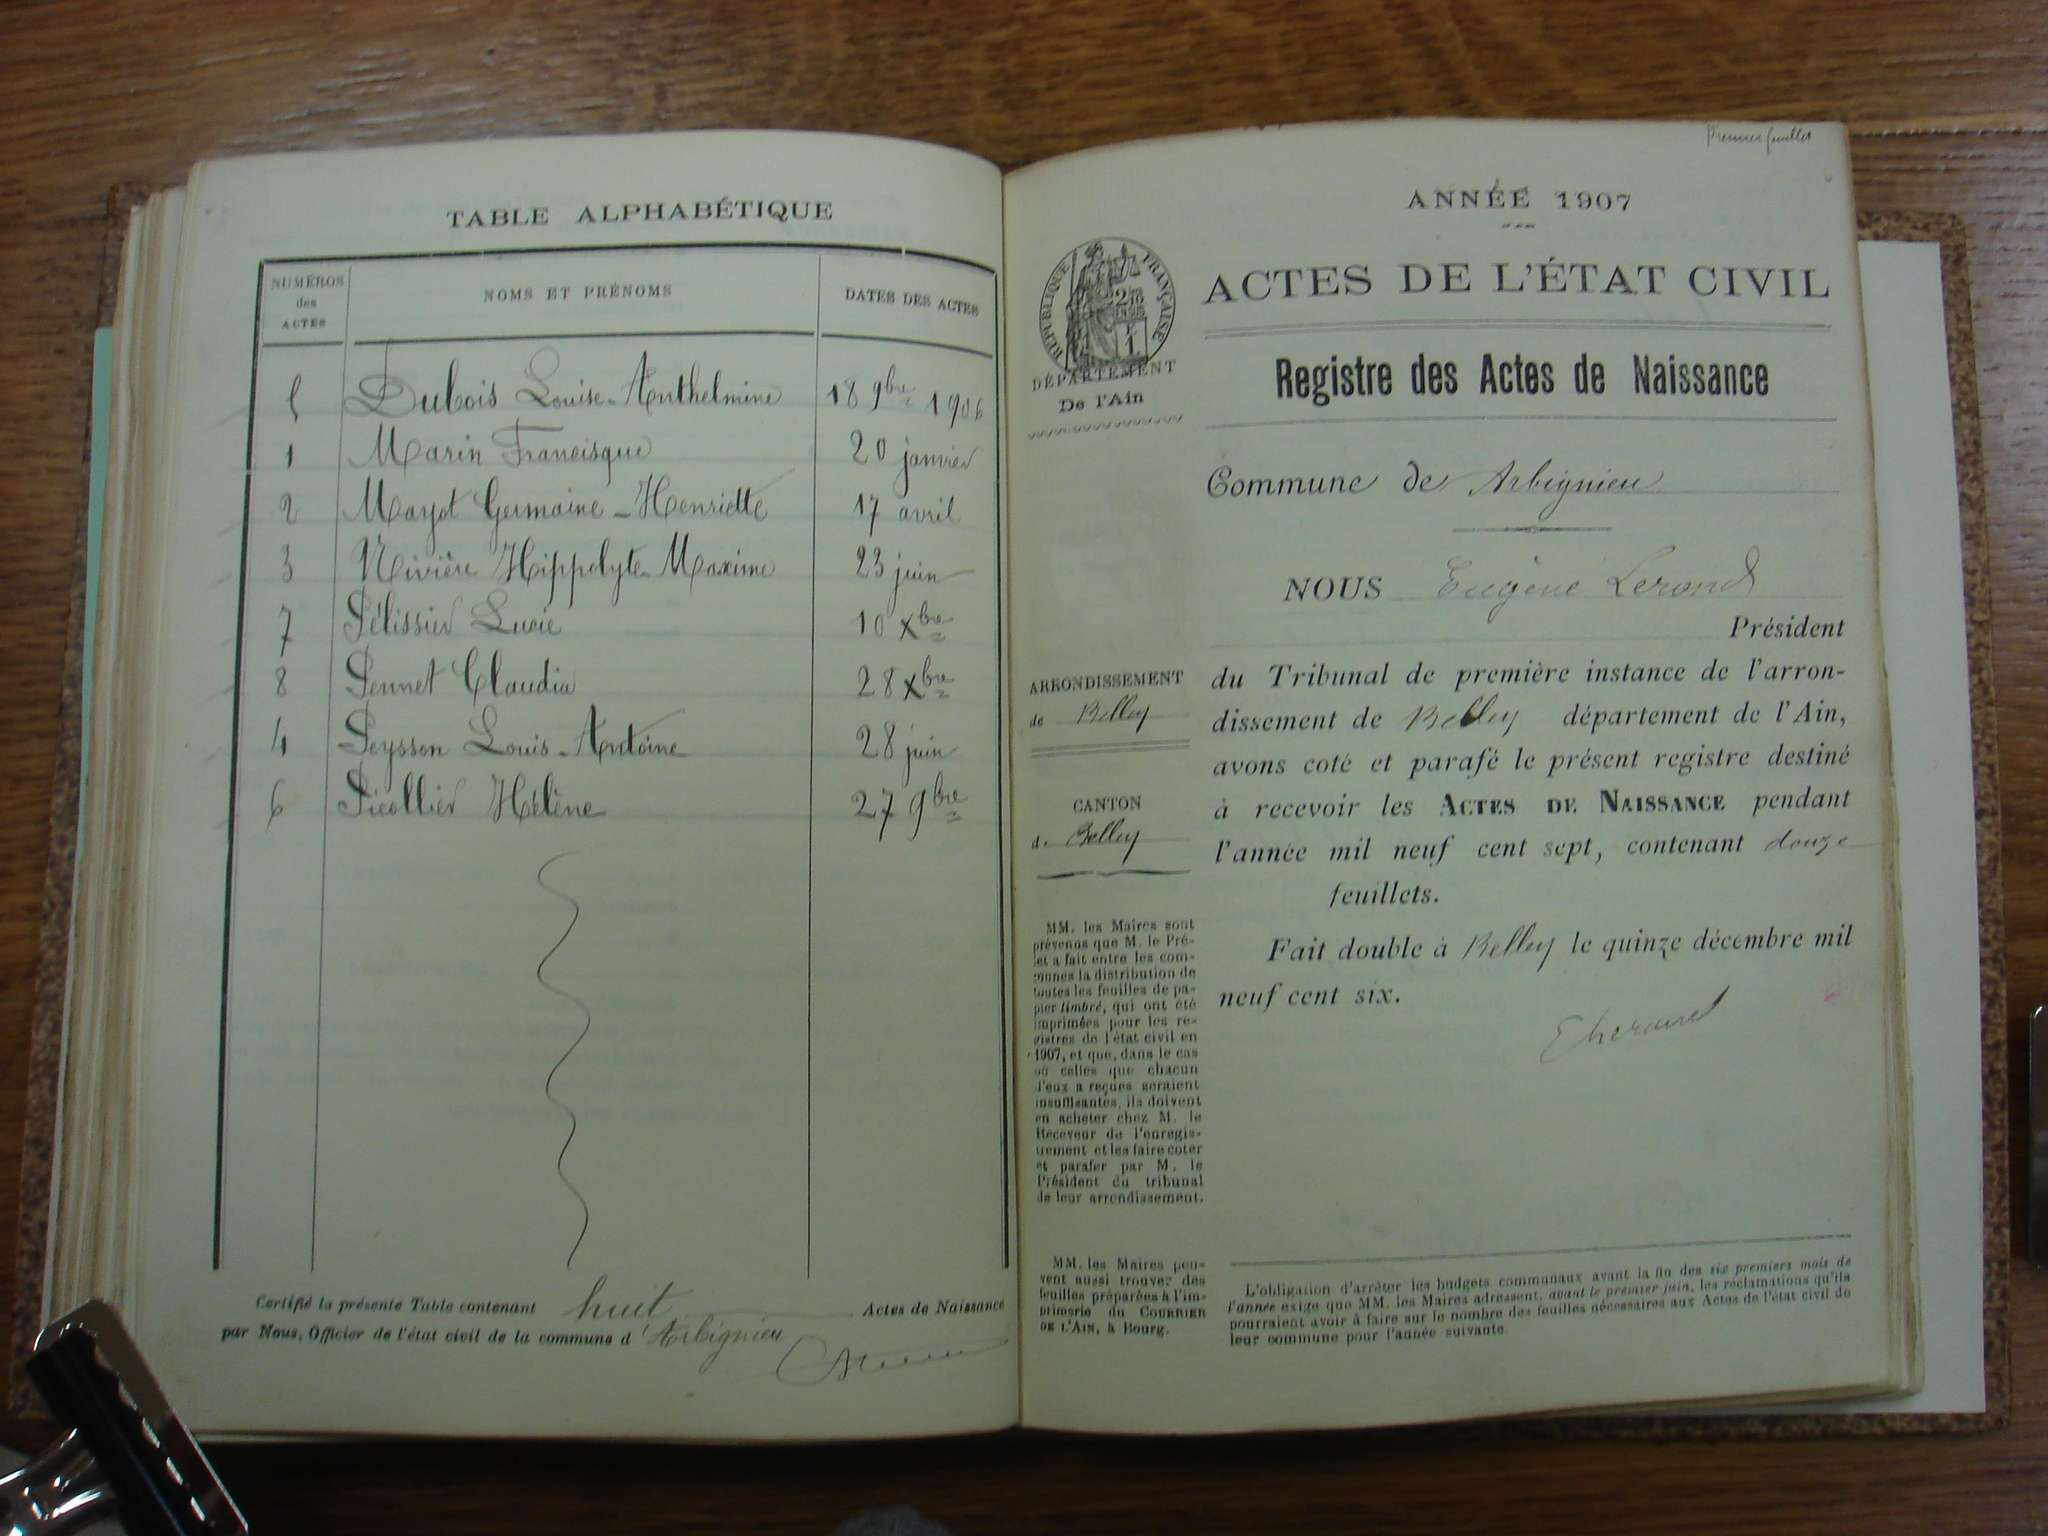 TABLE ALPHABÉTIQUE
NUMÉROS des ACTES NOMS ET PRÉNOMS DATES DES ACTES
5 Dubois Louise-Anthelmine 18 9bre 1906
1 Marin Francisque 20 janvier
2 Mayot Germaine-Henriette 17 avril
3 Nivière Hippolyte-Maxime 23 juin
7 Pélissier Lucie 10 Xbre
8 Pennet Claudia 28 Xbre
4 Peysson Louis-Antoine 28 juin
6 Picollier Hélène 27 9bre
Certifié la présente Table contenant huit Actes de Naissance
par Nous, Officier de l'état civil de la commune d'Arbignieu
Premier feuillet
ANNÉE 1907
RÉPUBLIQUE FRANÇAISE
ACTES DE L'ÉTAT CIVIL
DÉPARTEMENT
De l'Ain
Registre des Actes de Naissance
Commune de Arbignieu
NOUS Eugène Lerond
Président
ARRONDISSEMENT
de Belley
CANTON
de Belley
du Tribunal de première instance de l'arron-
dissement de Belley département de l'Ain,
avons coté et parafé le présent registre destiné
à recevoir les ACTES DE NAISSANCE pendant
l'année mil neuf cent sept, contenant douze
feuillets.
Fait double à Belley le quinze décembre mil
neuf cent six.
MM. les Maires sont
prévenus que M. le Pré-
fet a fait entre les com-
munes la distribution de
toutes les feuilles de pa-
pier timbré, qui ont été
imprimées pour les re-
gistres de l'état civil en
1907, et que, dans le cas
où celles que chacun
d'eux a reçues seraient
insuffisantes, ils doivent
en acheter chez M. le
Receveur de l'enregis-
trement et les faire coter
et parafer par M. le
Président du tribunal
de leur arrondissement.
MM. les Maires peu-
vent aussi trouver des
feuilles préparées à l'im-
primerie du COURRIER
DE L'AIN, à Bourg.
L'obligation d'arrêter les budgets communaux avant la fin des six premiers mois de
l'année exige que MM. les Maires adressent, avant le premier juin, les réclamations qu'ils
pourraient avoir à faire sur le nombre des feuilles nécessaires aux Actes de l'état civil de
leur commune pour l'année suivante.